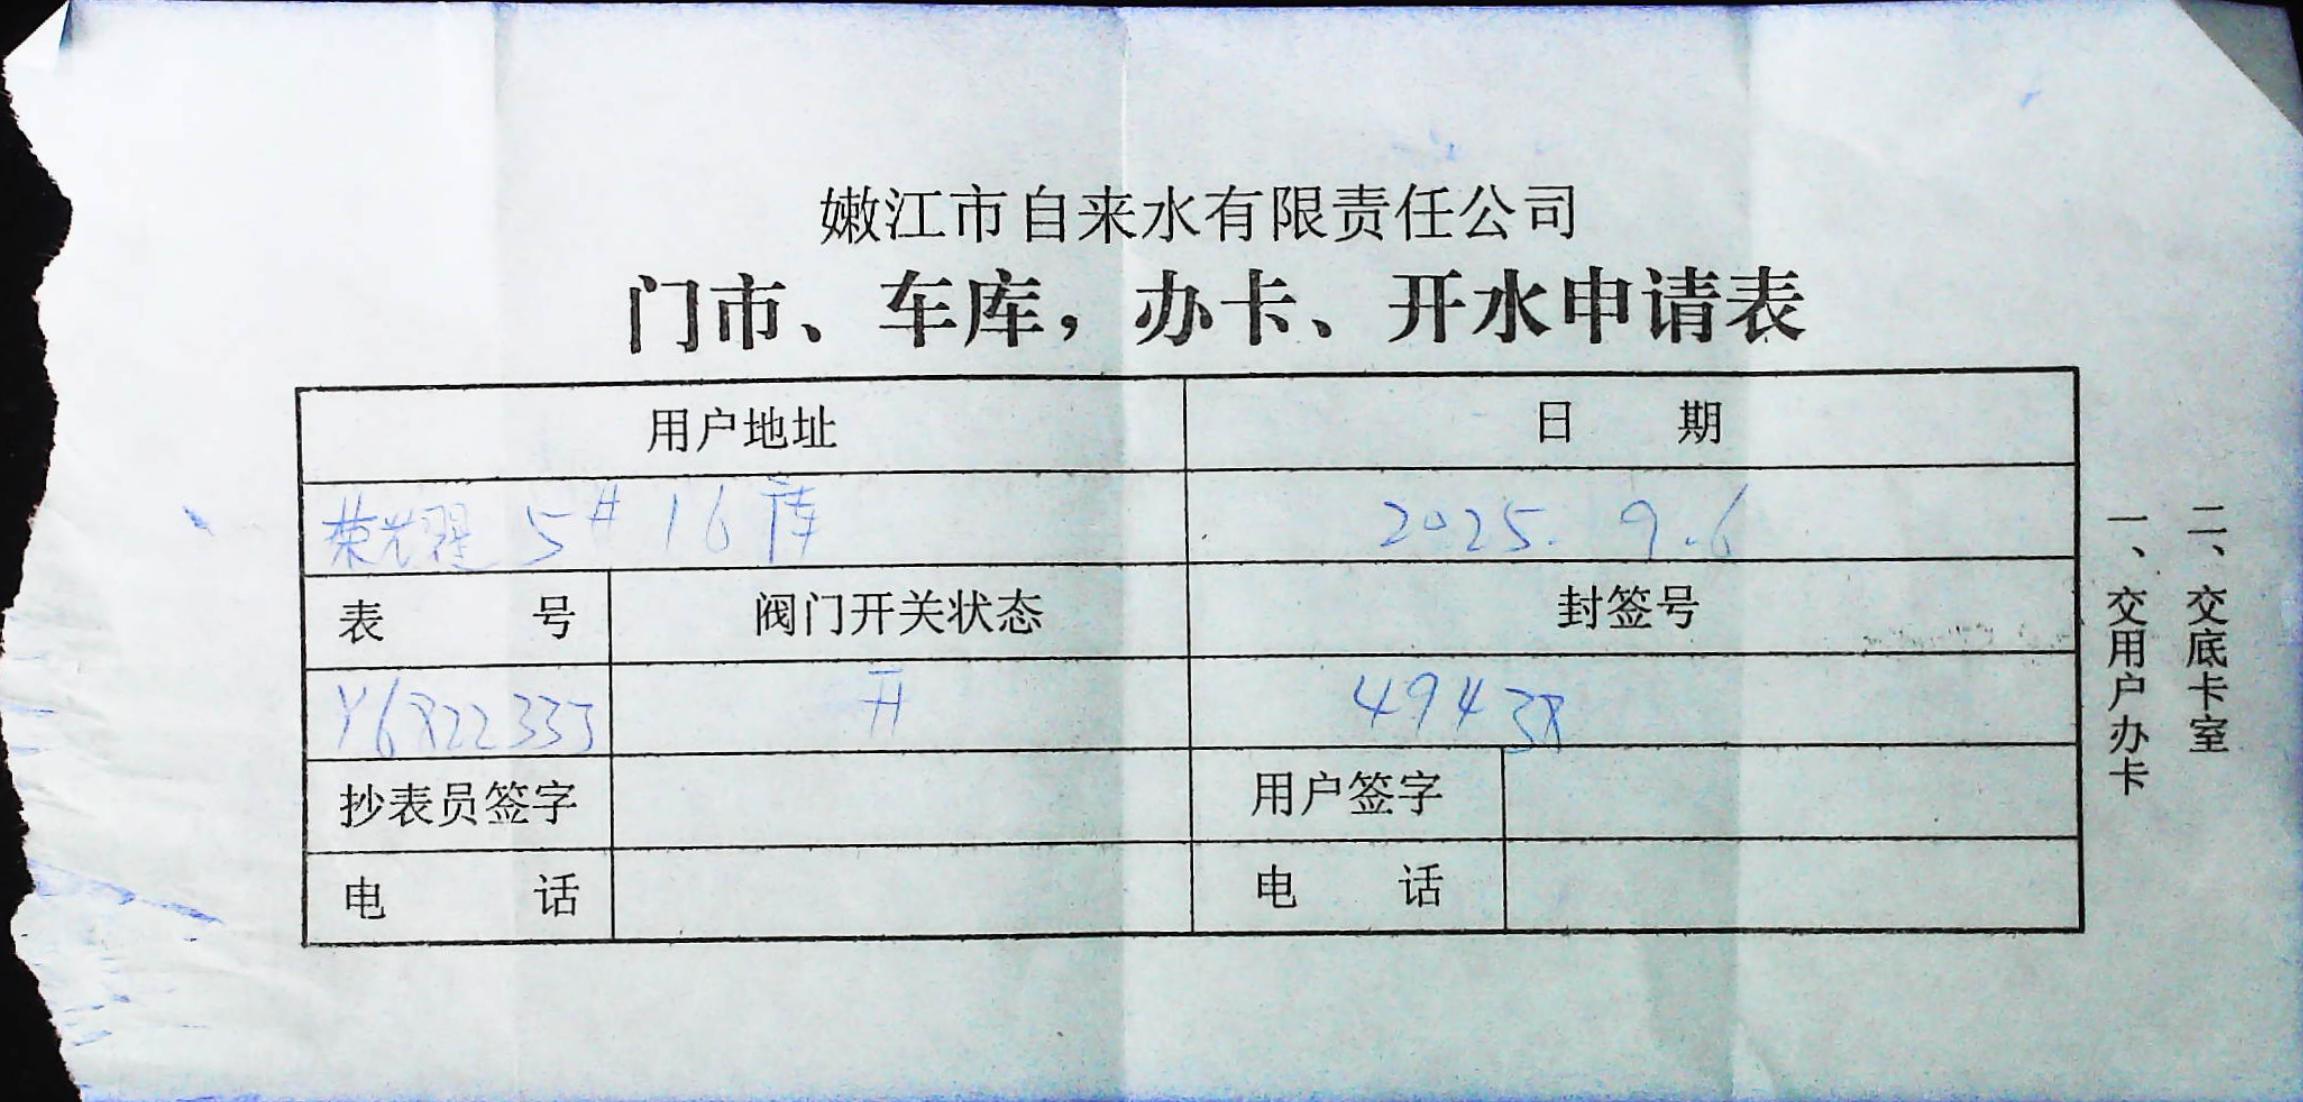 嫩江市自来水有限责任公司
门市、车库，办卡、开水申请表
用户地址 日 期
荣光耀 5# 16库 2025. 9.6
表 号 阀门开关状态 封签号
Y6822333 开 49438
抄表员签字 用户签字
电 话 电 话
一、交用户办卡
二、交底卡室